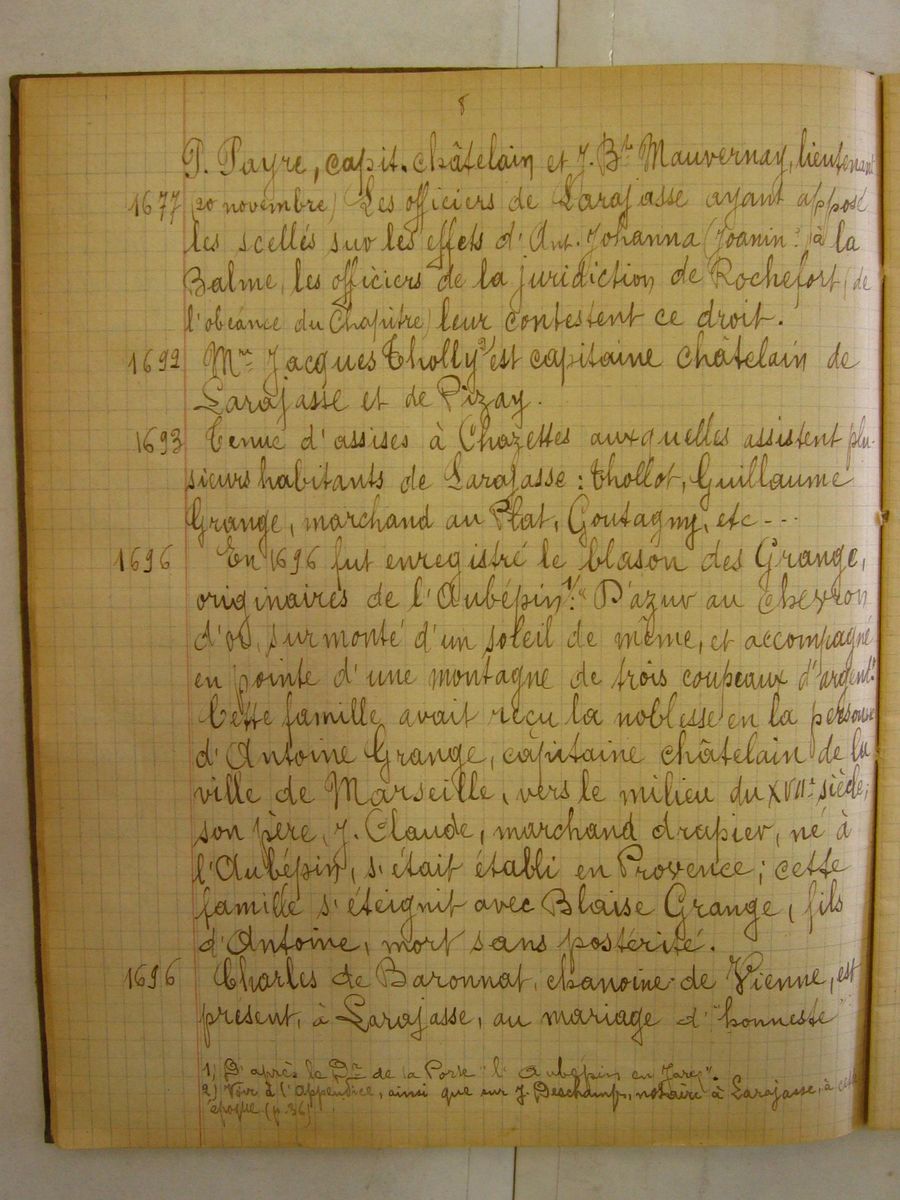 8
P. Payre, capit. châtelain et J. Bte Mauvernay, lieutenant
1677 (20 novembre) Les officiers de Larajasse ayant apposé
les scellés sur les effets d'Ant. Johanna (Joanin?) à la
Balme, les officiers de la juridiction de Rochefort (de
l'obéance du Chapitre) leur contestent ce droit.
1692 Mre Jacques Tholly 2) est capitaine châtelain de
Larajasse et de Pizay.
1693 Tenue d'assises à Chazettes auxquelles assistent plu-
sieurs habitants de Larajasse : Thollot, Guillaume
Grange, marchand au Plat, Goutagny, etc ---
1696 En 1696 fut enregistré le blason des Grange,
originaires de l'Aubépin 1) : "D'azur au chevron
d'or, surmonté d'un soleil de même, et accompagné
en pointe d'une montagne de trois coupeaux d'argent".
Cette famille avait reçu la noblesse en la personne
d'Antoine Grange, capitaine châtelain de la
ville de Marseille, vers le milieu du XVIIe siècle;
son père, J. Claude, marchand drapier, né à
l'Aubépin, s'était établi en Provence ; cette
famille s'éteignit avec Blaise Grange, fils
d'Antoine, mort sans postérité.
1696 Charles de Baronnat, chanoine de Vienne, est
présent, à Larajasse, au mariage d'"honneste
1) D'après le Dr de la Porte "l'Aubépin en Jarez".
2) Voir à l'Appendice, ainsi que sur J. Deschamps, notaire à Larajasse, à cette
époque (p. 36)